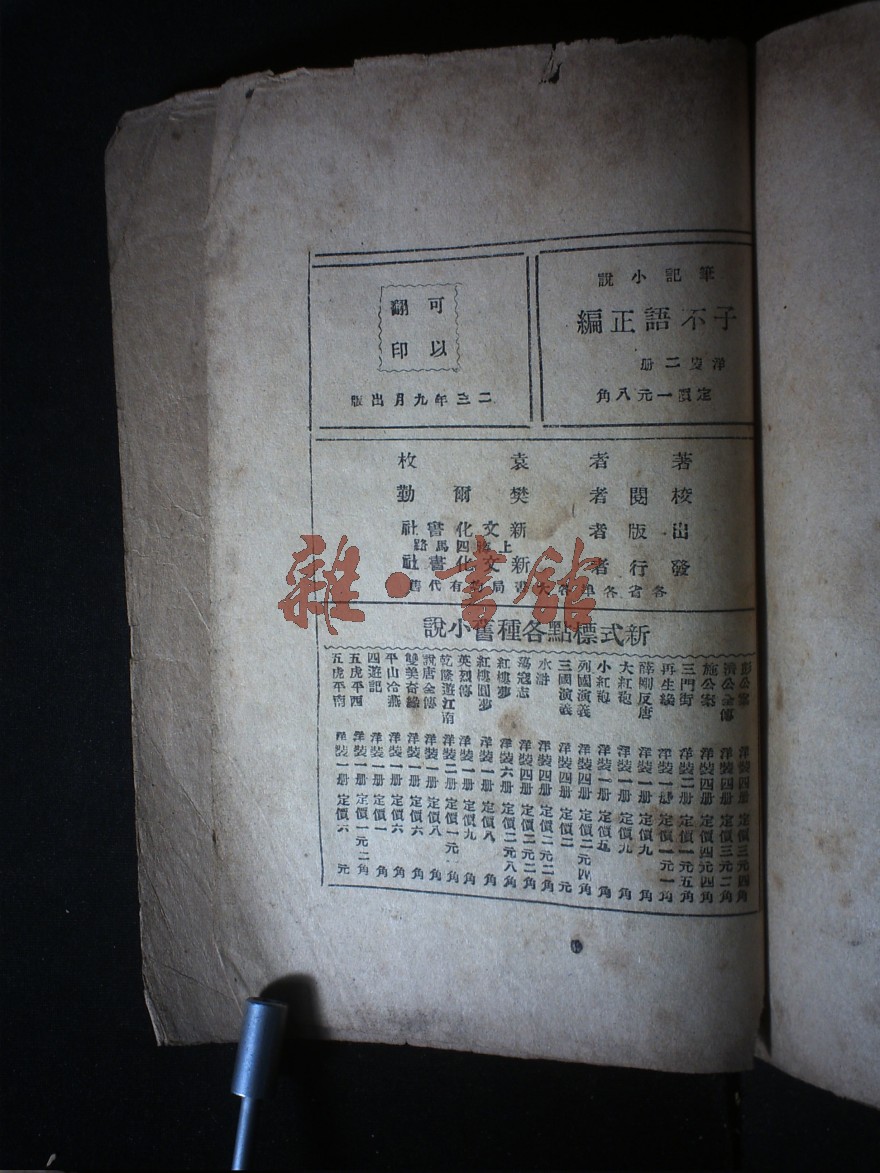 筆記小說
子不語正編
洋裝二册
定價一元八角
可以
翻印
二三年九月出版
著者袁枚
校閱者樊爾勤
出版者新文化書社
上海四馬路
發行者新文化書社
各省各埠各大書局均有代售
新式標點各種舊小說
彭公案 洋裝四册 定價三元四角
濟公全傳 洋裝四册 定價三元二角
施公案 洋裝四册 定價四元四角
三門街 洋裝二册 定價一元五角
再生緣 洋裝一册 定價一元一角
薛剛反唐 洋裝一册 定價九角
大紅袍 洋裝一册 定價九角
小紅袍 洋裝一册 定價五角
列國演義 洋裝四册 定價二元四角
三國演義 洋裝四册 定價二元
水滸 洋裝四册 定價二元二角
蕩寇志 洋裝四册 定價二元二角
紅樓夢 洋裝六册 定價二元八角
紅樓圓夢 洋裝一册 定價八角
英烈傳 洋裝一册 定價九角
乾隆遊江南 洋裝二册 定價一元角
說唐全傳 洋裝一册 定價八角
雙美奇緣 洋裝一册 定價六角
平山冷燕 洋裝一册 定價六角
四遊記 洋裝一册 定價一角
五虎平西 洋裝一册 定價一元二角
五虎平南 洋裝一册 定價六元
雜·書館